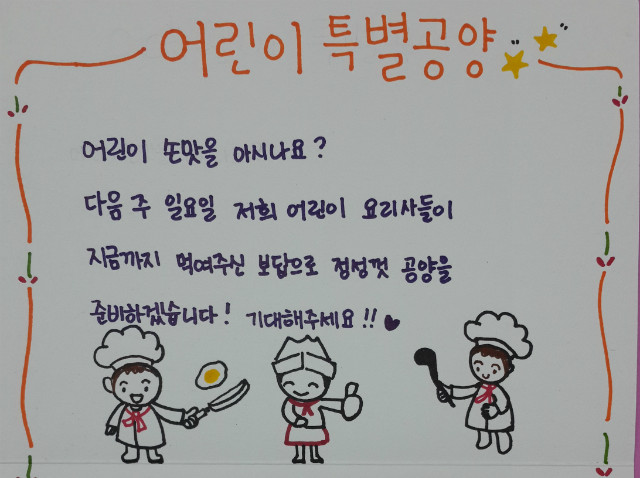 어린이 특별공양
어린이 손맛을 아시나요?
다음 주 일요일 저희 어린이 요리사들이
지금까지 먹여주신 보답으로 정성껏 공양을
준비하겠습니다! 기대해주세요!!